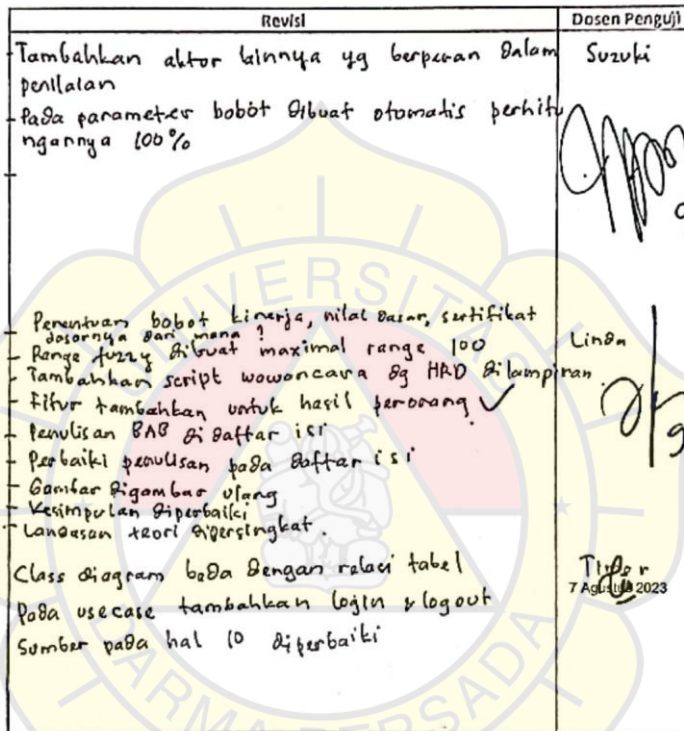 Revisi
Dosen Penguji
- Tambahkan aktor lainnya yg berperan dalam
penilaian
Suzuki
- Pada parameter bobot dibuat otomatis perhitu
ngannya 100%
-
- Penentuan bobot kinerja, nilai dasar, sertifikat
dasarnya dari mana ?
Linda
- Range fuzzy dibuat maximal range 100
- Tambahkan script wawancara dg HRD dilampiran
- Fitur tambahkan untuk hasil perorang ✓
- Penulisan BAB di daftar isi
- Perbaiki penulisan pada daftar isi
- Gambar digambar ulang
- Kesimpulan diperbaiki
- Landasan teori dipersingkat.
Class diagram beda dengan relasi tabel
7 Agustus 2023
Pada usecase tambahkan login & logout
Sumber pada hal 10 diperbaiki
UNIVERSITAS
DARMA PERSADA